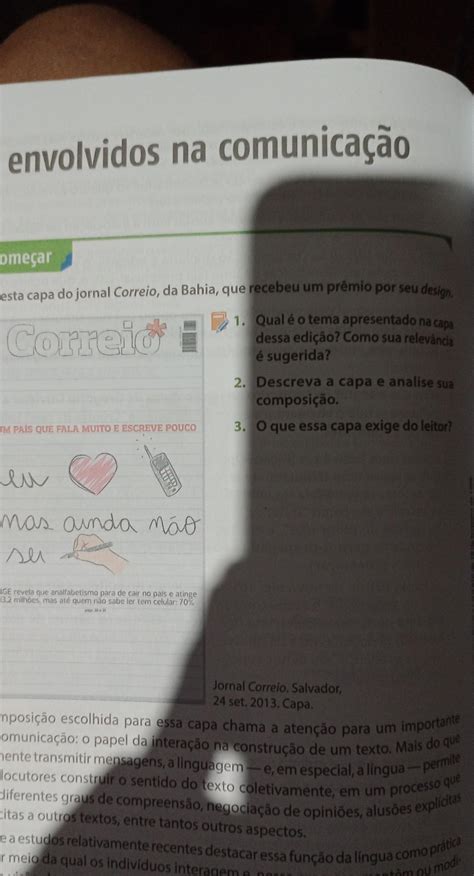 envolvidos na comunicação
omeçar
esta capa do jornal Correio, da Bahia, que recebeu um prêmio por seu design.
Correio*
UM PAÍS QUE FALA MUITO E ESCREVE POUCO
eu
mas ainda não
sei
IBGE revela que analfabetismo para de cair no país e atinge
13,2 milhões, mas até quem não sabe ler tem celular: 70%
1. Qual é o tema apresentado na capa
dessa edição? Como sua relevância
é sugerida?
2. Descreva a capa e analise sua
composição.
3. O que essa capa exige do leitor?
Jornal Correio. Salvador,
24 set. 2013. Capa.
mposição escolhida para essa capa chama a atenção para um importante
omunicação: o papel da interação na construção de um texto. Mais do que
mente transmitir mensagens, a linguagem — e, em especial, a língua — permite
locutores construir o sentido do texto coletivamente, em um processo que
diferentes graus de compreensão, negociação de opiniões, alusões explícitas
citas a outros textos, entre tantos outros aspectos.
e a estudos relativamente recentes destacar essa função da língua como prática
r meio da qual os indivíduos interagem e
ou modi-